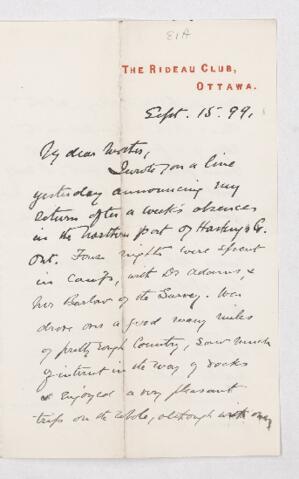 E1A
THE RIDEAU CLUB,
OTTAWA.
Sept. 15. 99.
My dear
I wrote you a line
yesterday announcing my
return after a week's absence
in the northern part of Hastings Co.
Ont. Four nights were spent
in camp, with Dr Adams, &
Mr Barlow of the Survey. We
drove over a good many miles
of pretty rough country, saw much
of interest in the way of rocks
& enjoyed a very pleasant
trip on the whole, although